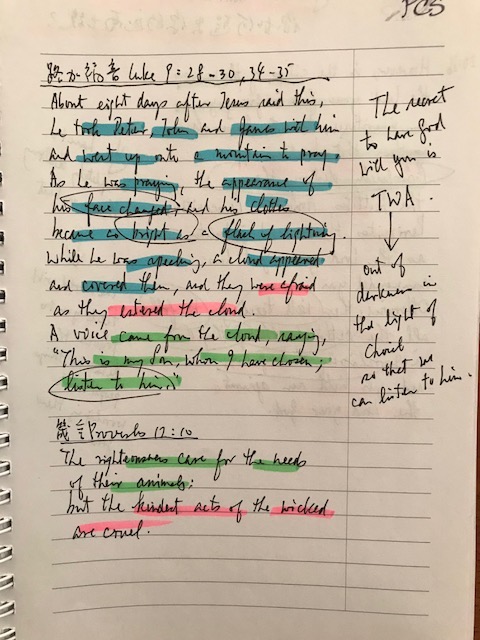 PCS
路加福音 Luke 9:28-30, 34-35
About eight days after Jesus said this,
he took Peter, John and James with him
and went up onto a mountain to pray.
As he was praying, the appearance of
his face changed, and his clothes
became as bright as a flash of lightning.
While he was speaking, a cloud appeared
and covered them, and they were afraid
as they entered the cloud.
A voice came from the cloud, saying,
"This is my son, whom I have chosen;
listen to him."
箴言 Proverbs 12:10
The righteous care for the needs
of their animals:
but the kindest acts of the wicked
are cruel.
The secret
to have God
with you is
TWA.
out of
darkness in
the light of
Christ
so that we
can listen to him.